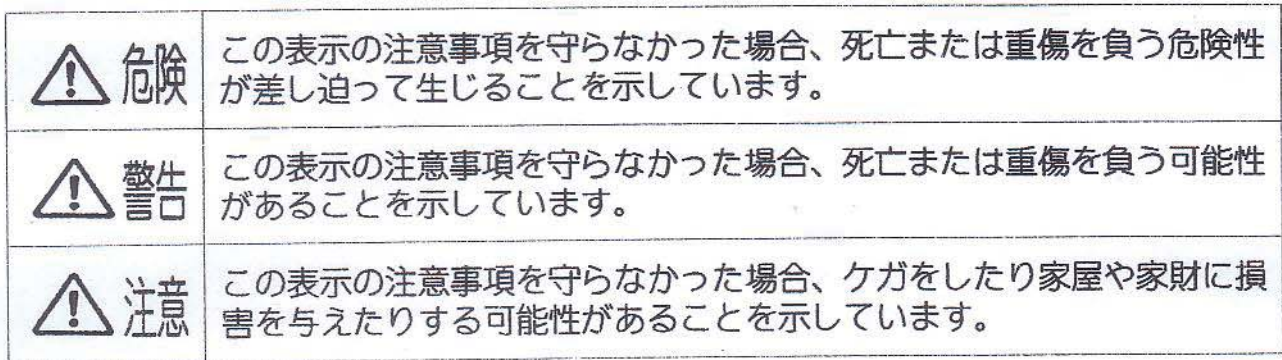 危険
この表示の注意事項を守らなかった場合、死亡または重傷を負う危険性
が差し迫って生じることを示しています。
警告
この表示の注意事項を守らなかった場合、死亡または重傷を負う可能性
があることを示しています。
注意
この表示の注意事項を守らなかった場合、ケガをしたり家屋や家財に損
害を与えたりする可能性があることを示しています。